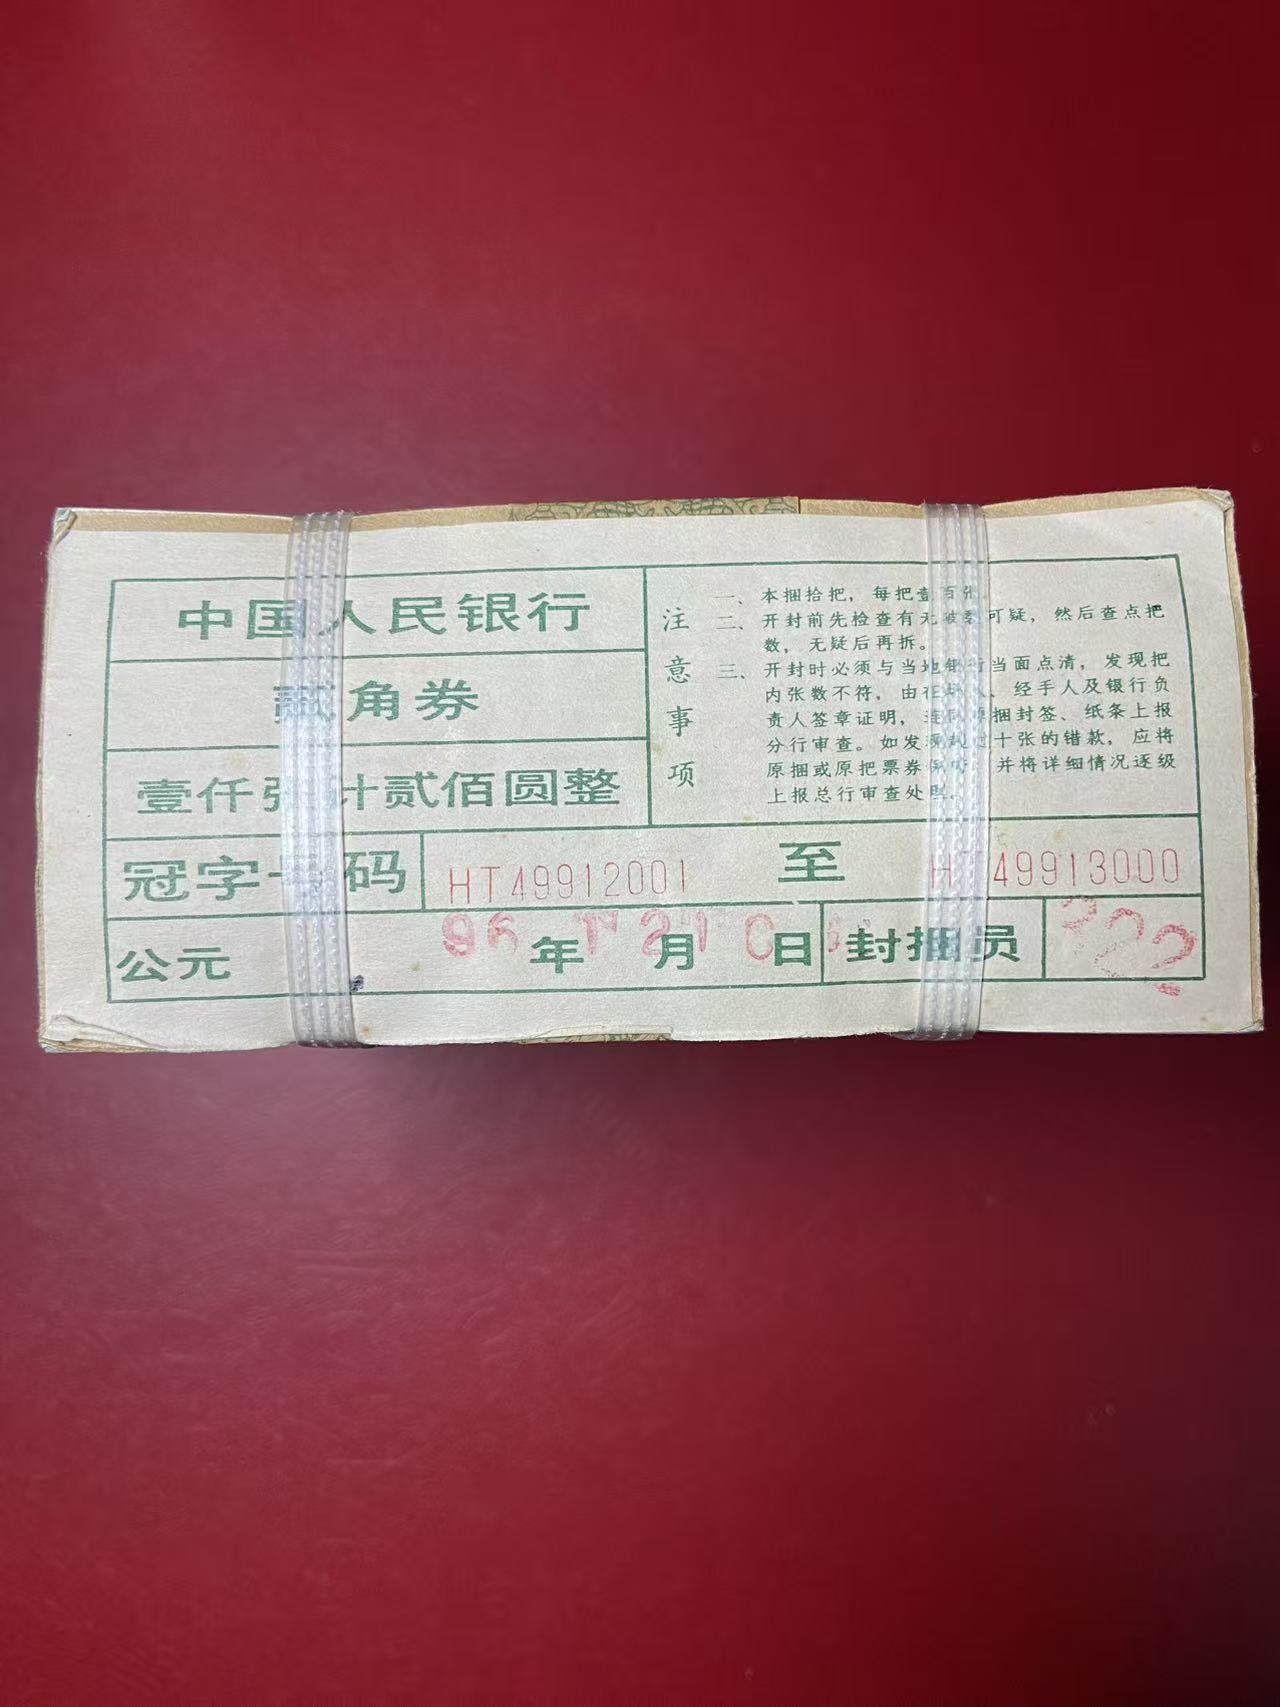 中国人民银行
贰角券
壹仟张计贰佰圆整
注意事项
一、本捆拾把，每把壹百张。
二、开封前先检查有无破裂可疑，然后查点把
数，无疑后再拆。
三、开封时必须与当地银行当面点清，发现把
内张数不符，由在场人、经手人及银行负
责人签章证明，连同原捆封签、纸条上报
分行审查。如发现超过十张的错款，应将
原捆或原把票券保留，并将详细情况逐级
上报总行审查处理。
冠字号码 HT49912001 至 HT49913000
公元 96 年 月 日 封捆员 222